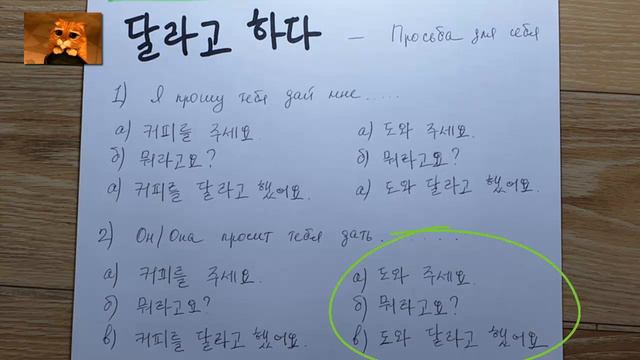 달라고 하다 — Просьба для себя
1) Я прошу тебя дай мне.....
а) 커피를 주세요.
б) 뭐라고요?
а) 커피를 달라고 했어요.
а) 도와 주세요.
б) 뭐라고요?
а) 도와 달라고 했어요.
2) Он/Она просит тебя дать........
а) 커피를 주세요.
б) 뭐라고요?
в) 커피를 달라고 했어요.
а) 도와 주세요.
б) 뭐라고요?
в) 도와 달라고 했어요